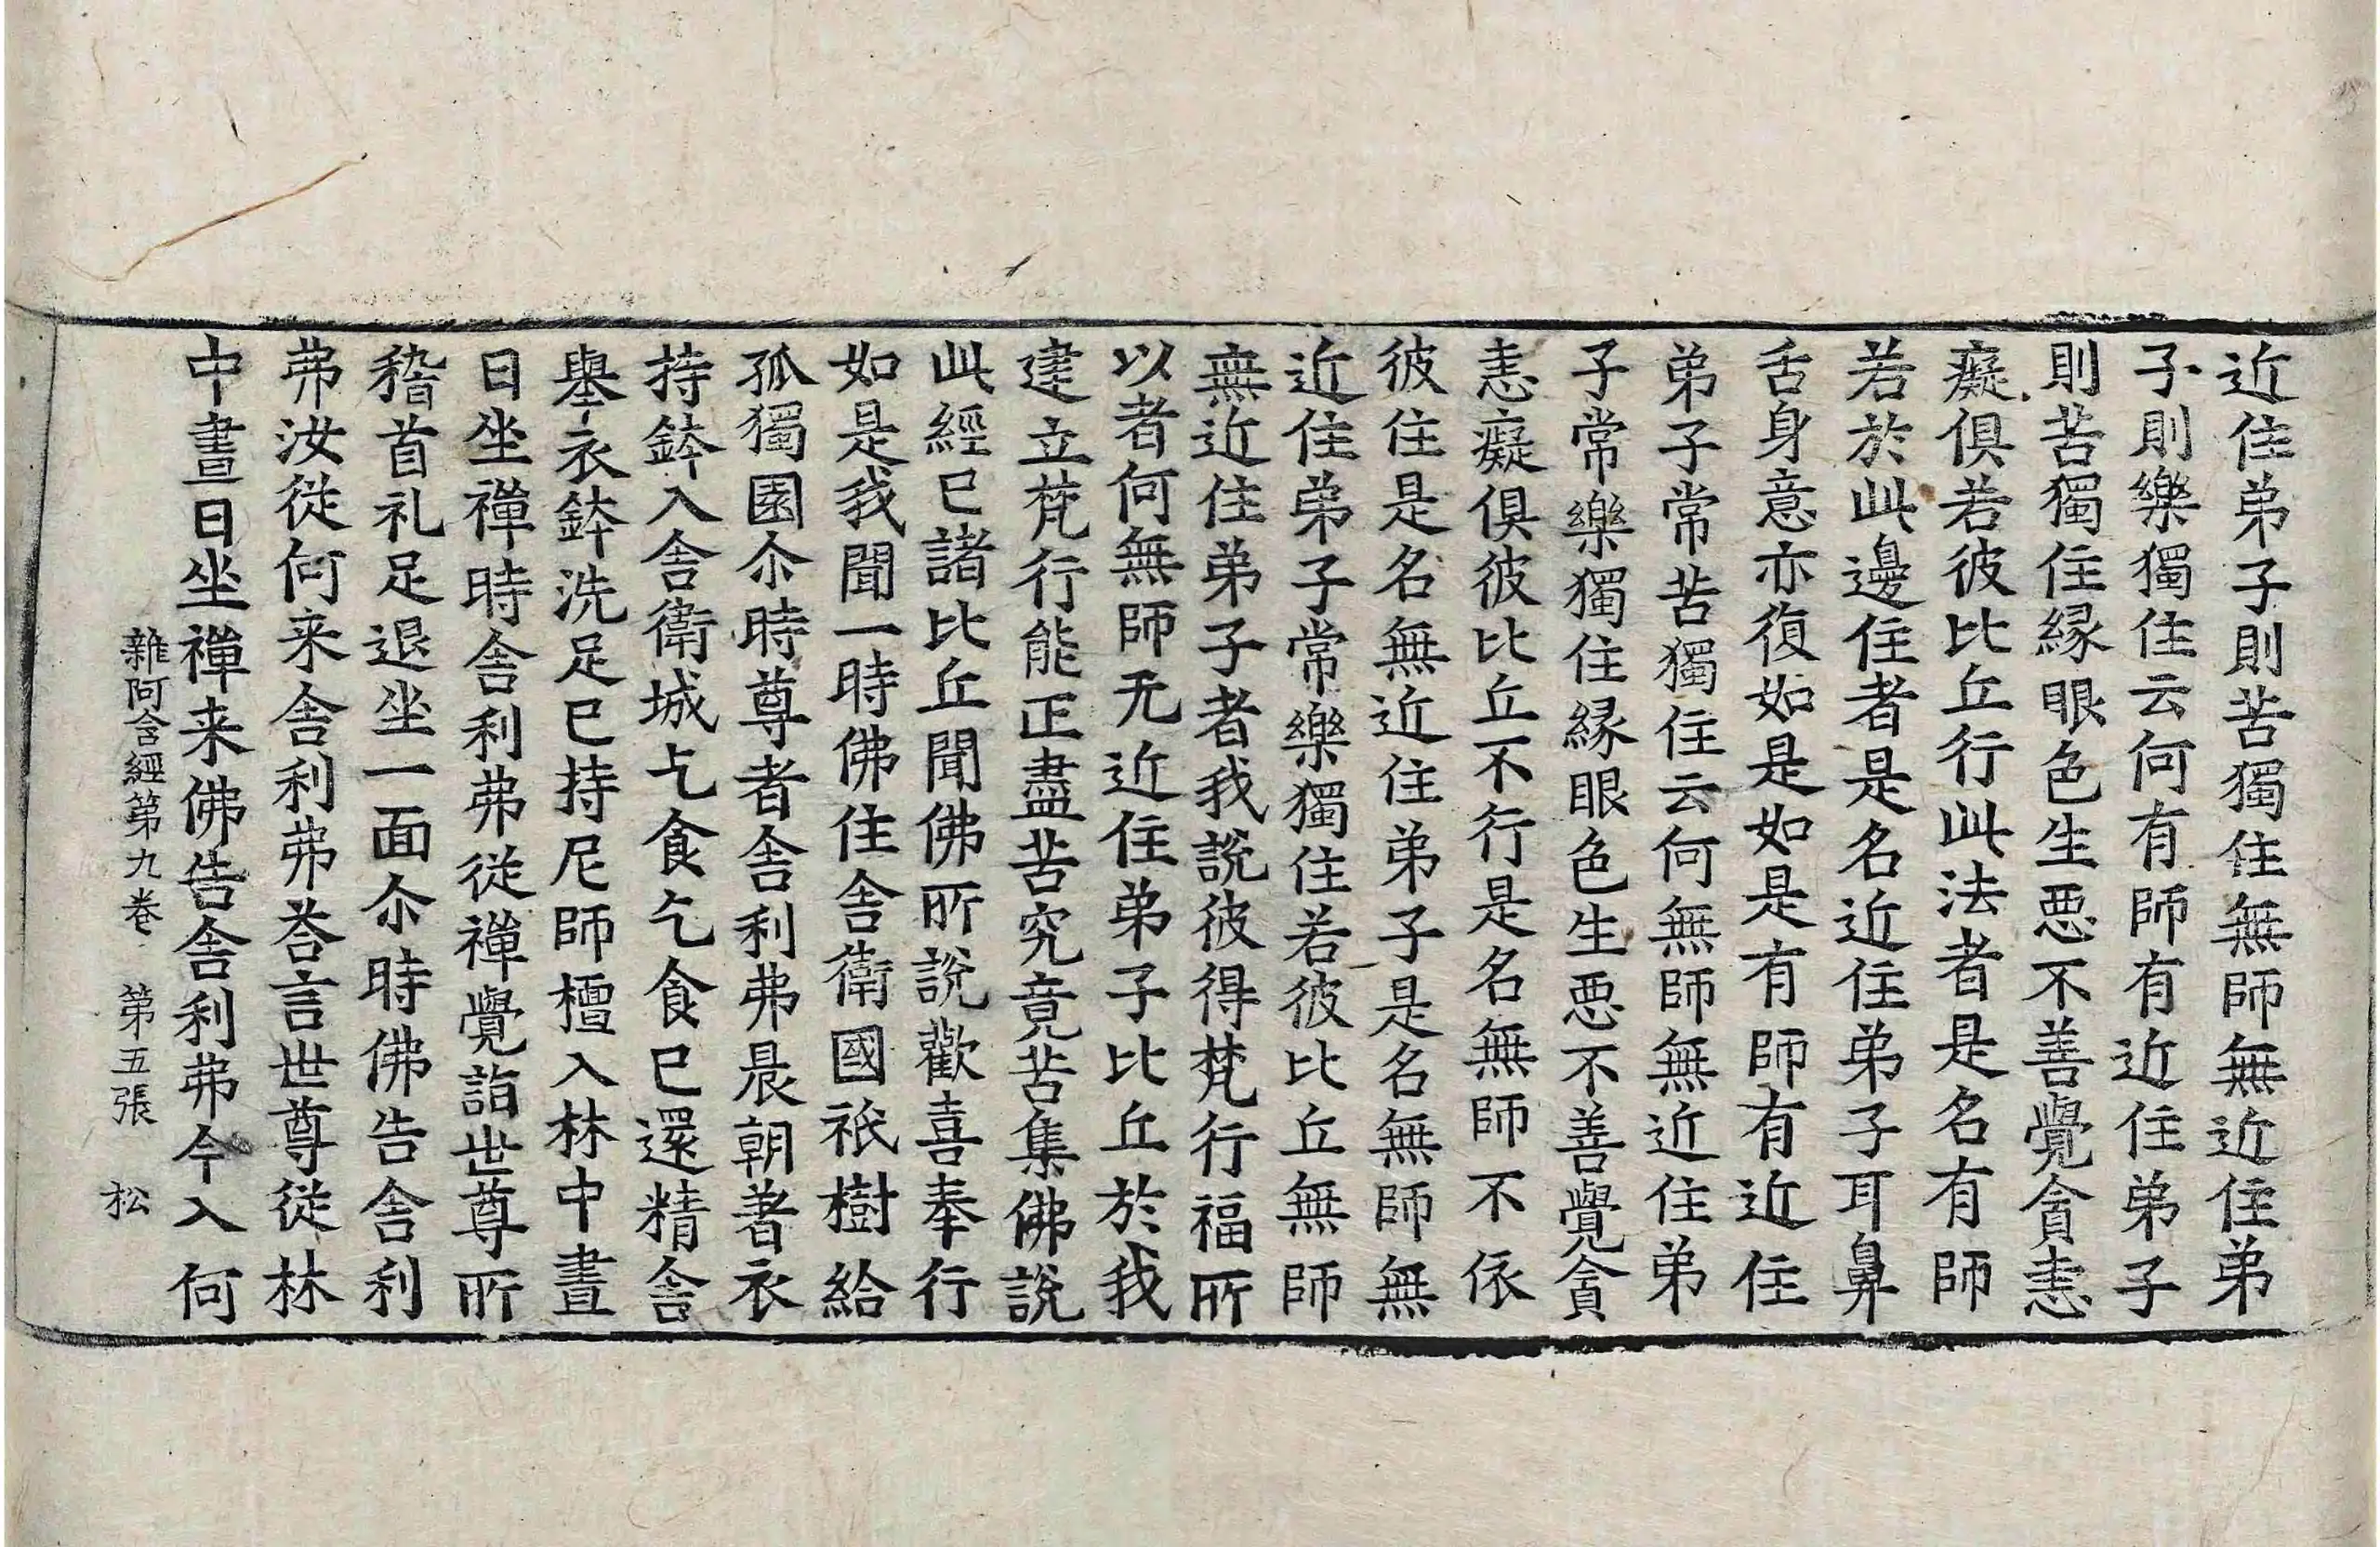 近住弟子則苦獨住無師無近住弟
子則樂獨住云何有師有近住弟子
則苦獨住縁眼色生恶不善覺貪恚
癡俱若彼比丘行此法者是名有師
若於此邊住者是名近住弟子耳鼻
舌身意亦復如是如是有師有近住
弟子常苦獨住云何無師無近住弟
子常樂獨住縁眼色生恶不善覺貪
恚癡俱彼比丘不行是名無師不依
彼住是名無近住弟子是名無師無
近住弟子常樂獨住若彼比丘無師
無近住弟子者我說彼得梵行福所
以者何無師无近住弟子比丘於我
建立梵行能正盡苦究竟苦集佛說
此經已諸比丘聞佛所說歡喜奉行
如是我聞一時佛住舍衛國祇樹給
孤獨園尒時尊者舍利弗晨朝著衣
持鉢入舍衛城乞食乞食已還精舍
舉衣鉢洗足已持尼師檀入林中晝
日坐禪時舍利弗從禪覺詣世尊所
稽首礼足退坐一面尒時佛告舍利
弗汝從何来舍利弗荅言世尊從林
中晝日坐禪来佛告舍利弗今入何
雜阿含經第九卷 第五張 松